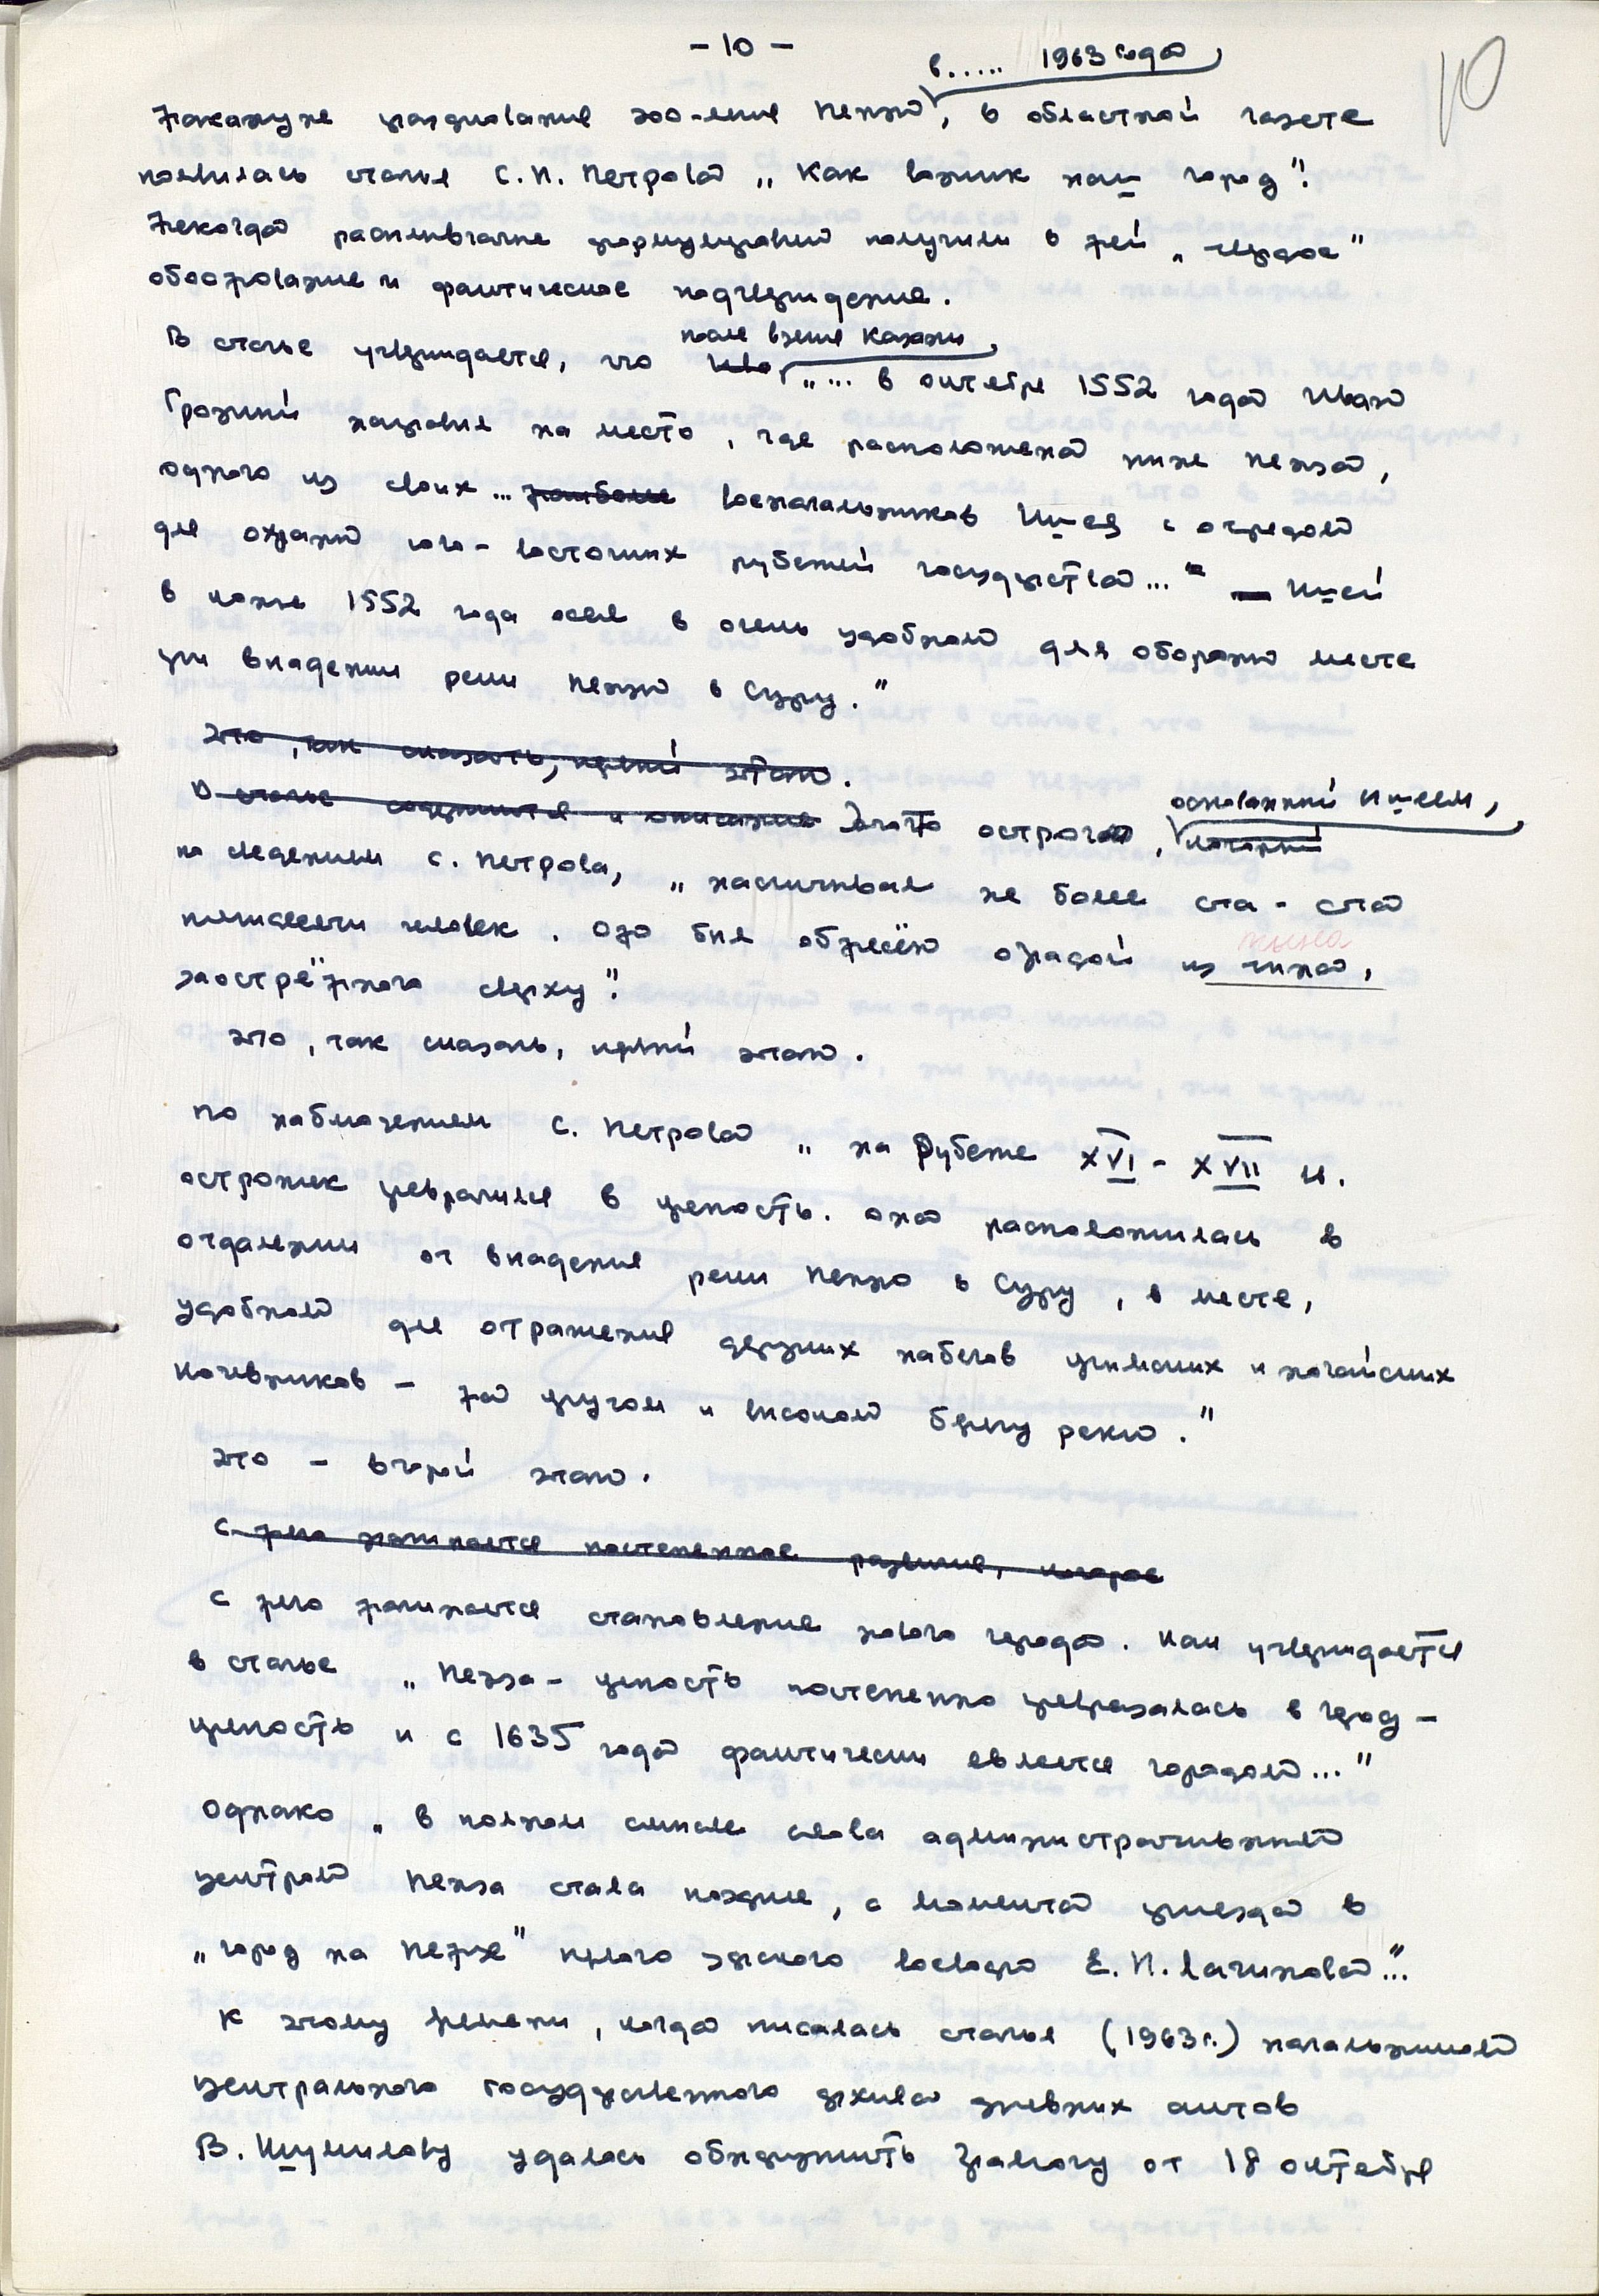 - 10 -
10
в..... 1963 года
Накануне празднования 300-летия Пензы, в областной газете
появилась статья С.П. Петрова „Как возник наш город".
Некогда расплывчатые формулировки получили в ней „твердое"
обоснование и фактическое подтверждение.
после взятия Казани,
В статье утверждается, что Ива „... в октябре 1552 года Иван
Грозный направил на место, где расположена ныне Пенза,
одного из своих ... наиболее военачальников Ишея с отрядом
для охраны юго-восточных рубежей государства..." — Ишей
в конце 1552 года осел в очень удобном для обороны месте
при впадении реки Пензы в Суру."
Это, так сказать, первый этап.
основанный Ишеем,
В статье содержится и описание этого острога, который
по сведениям С. Петрова, „насчитывал не более ста - ста
пятидесяти человек. Он был обнесён оградой из тына,
тына
заострённого сверху".
Это, так сказать, первый этап.
По наблюдениям С. Петрова „на рубеже XVI - XVII вв.
острожек превратился в крепость. Она расположилась в
отдалении от впадения реки Пензы в Суру, в месте,
удобном для отражения дерзких набегов крымских и ногайских
кочевников - на крутом и высоком берегу реки."
Это - второй этап.
С него начинается постепенное развитие, которое
С него начинается становление нового города. Как утверждается
в статье „Пенза - крепость постепенно превращалась в город -
крепость и с 1635 года фактически является городом..."
Однако „в полном смысле слова административным
центром Пенза стала позднее, с момента приезда в
„город на Пензе" первого царского воеводы Е.П. Лачинова"...
К этому времени, когда писалась статья (1963 г.) начальником
Центрального государственного архива древних актов
В. Шумилову удалось обнаружить грамоту от 18 октября